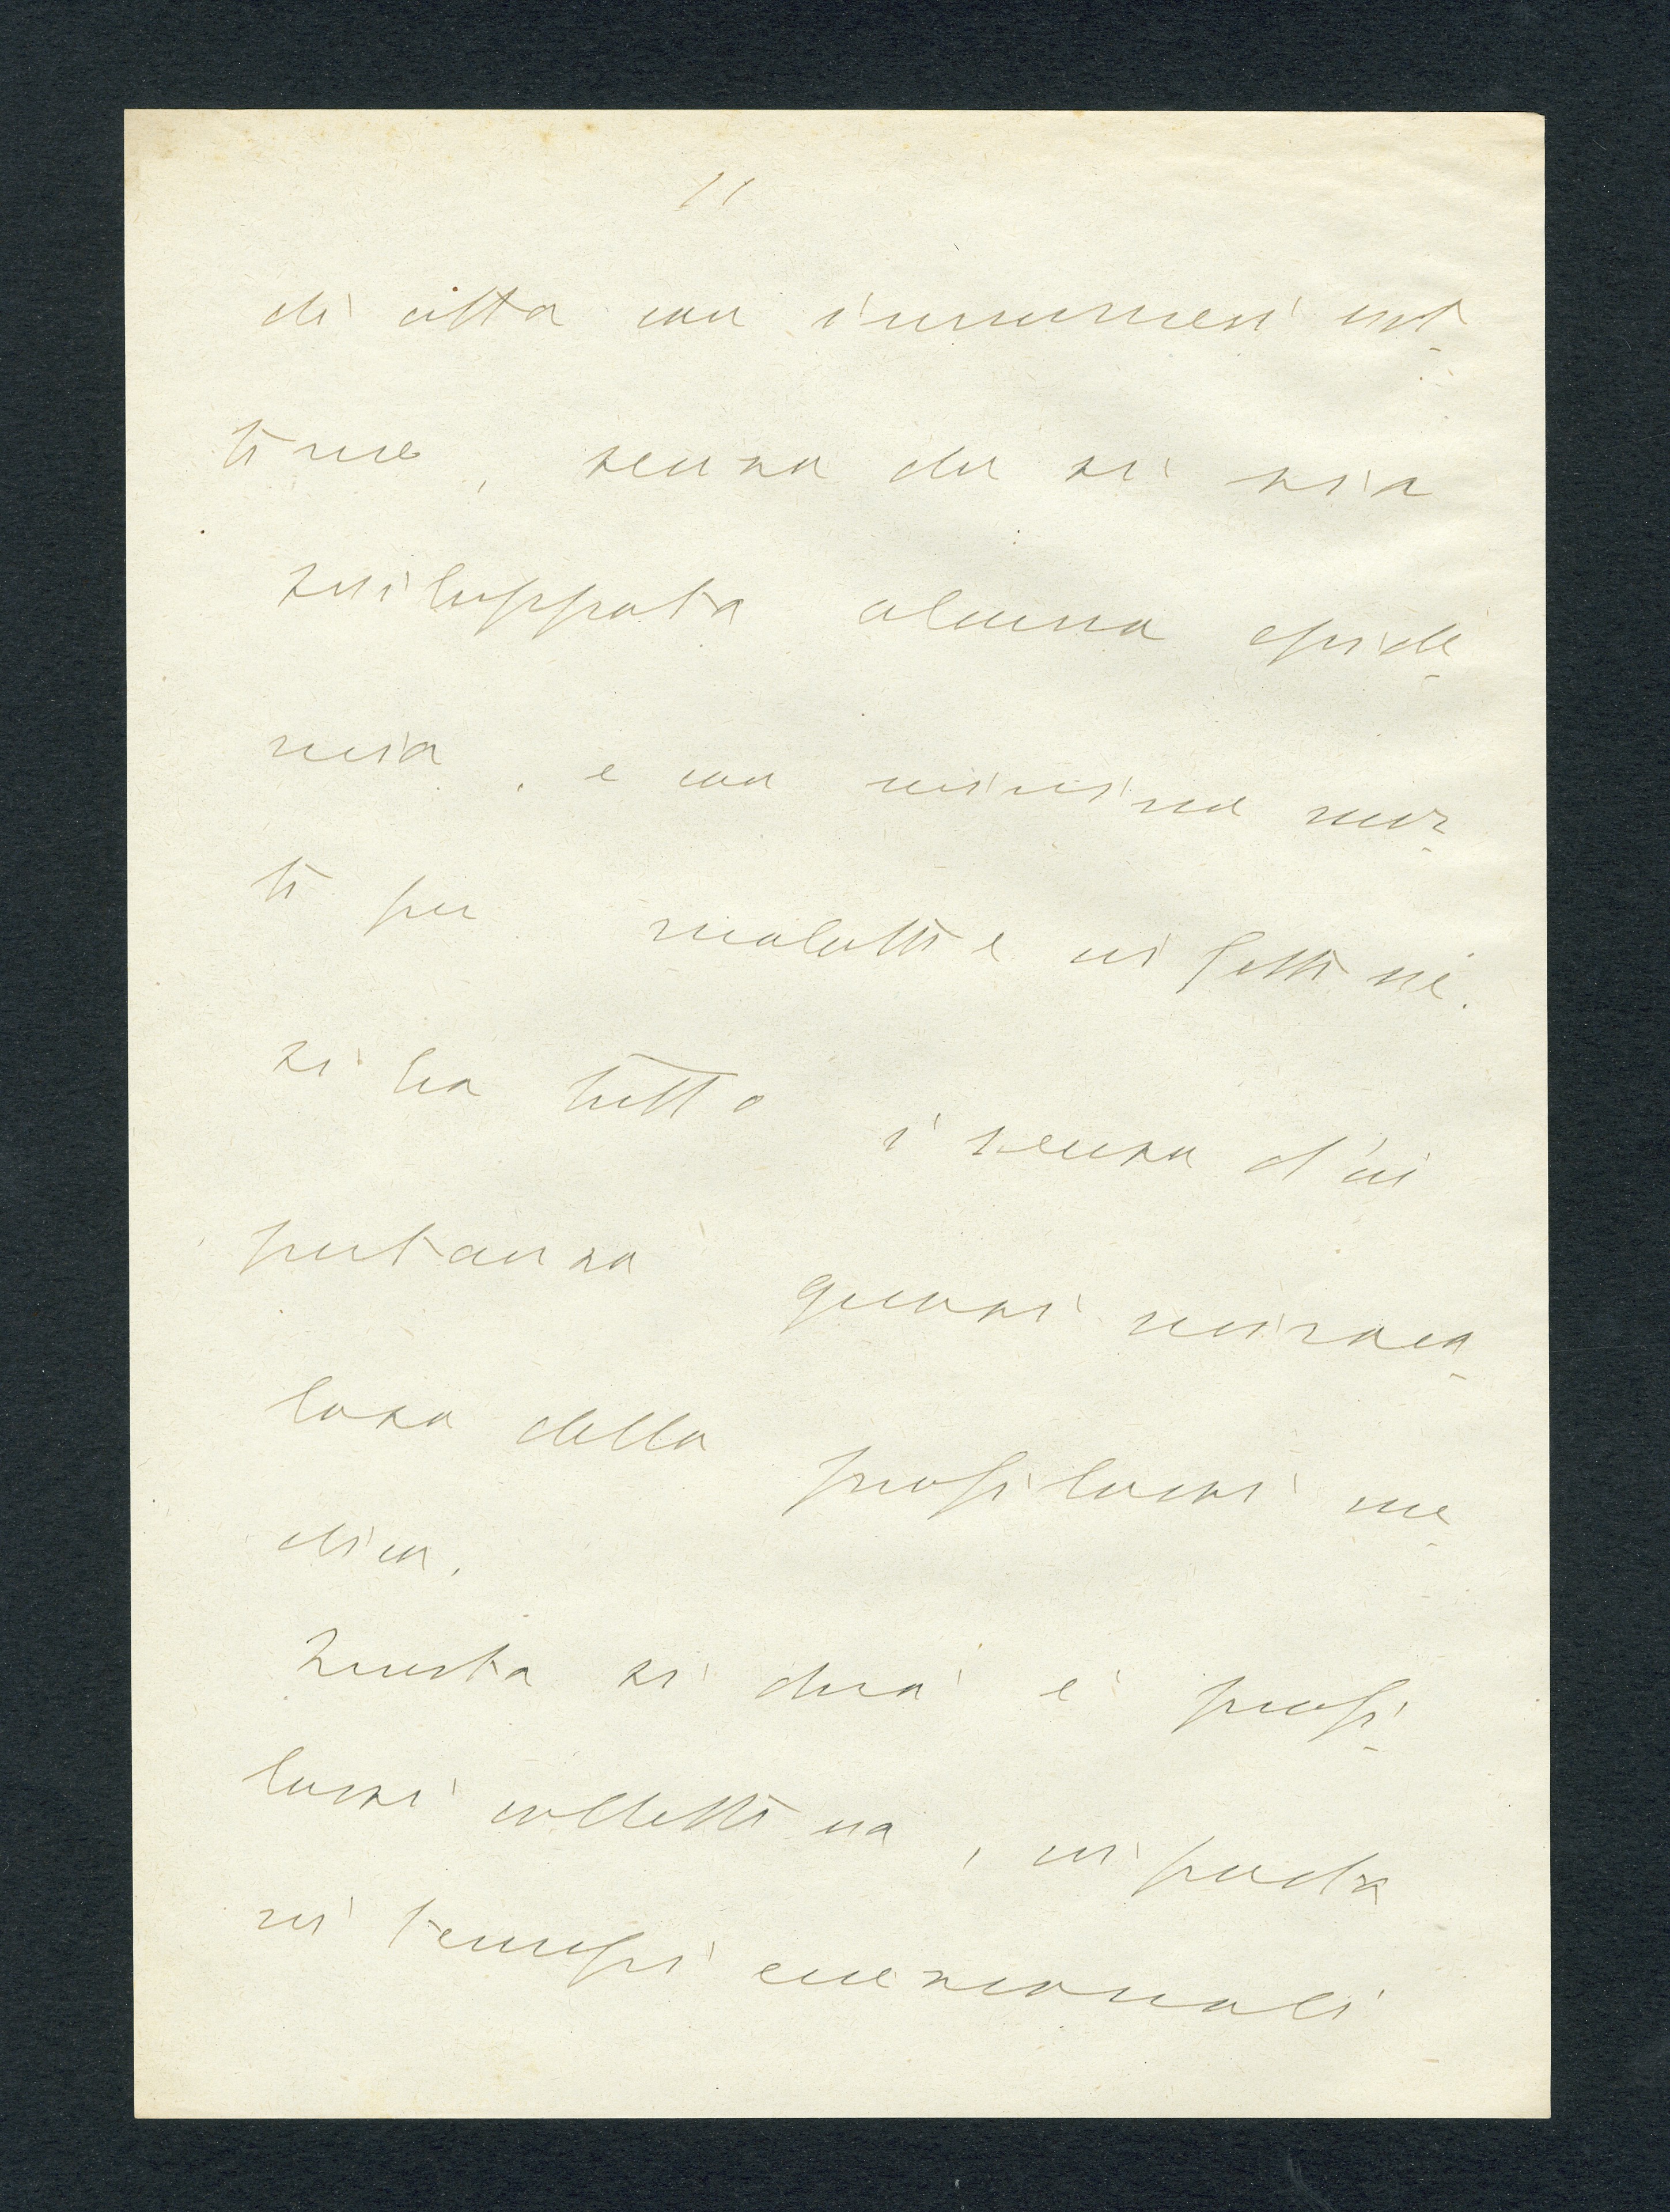 11
di città con innumeri vit-
time, senza che si sia
sviluppata alcuna epide-
mia, e con minima mor-
ti per malattie infettive.
si ha tutto
potanza quasi miraco-
losa della profilassi me-
dica.
Questa si dirà è profi-
lassi collettiva,
in tempi eccezionali